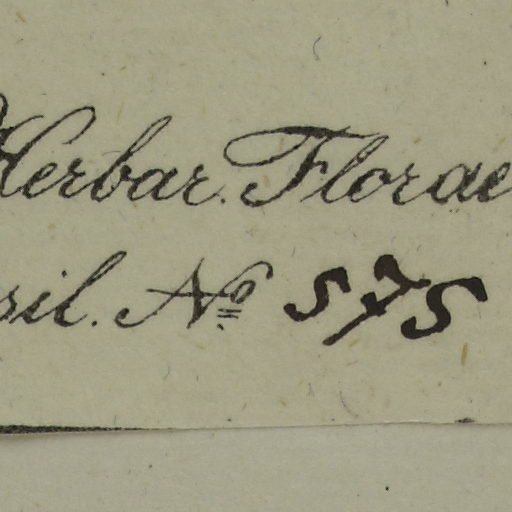 Herbar. Florae
sil. Nº 575